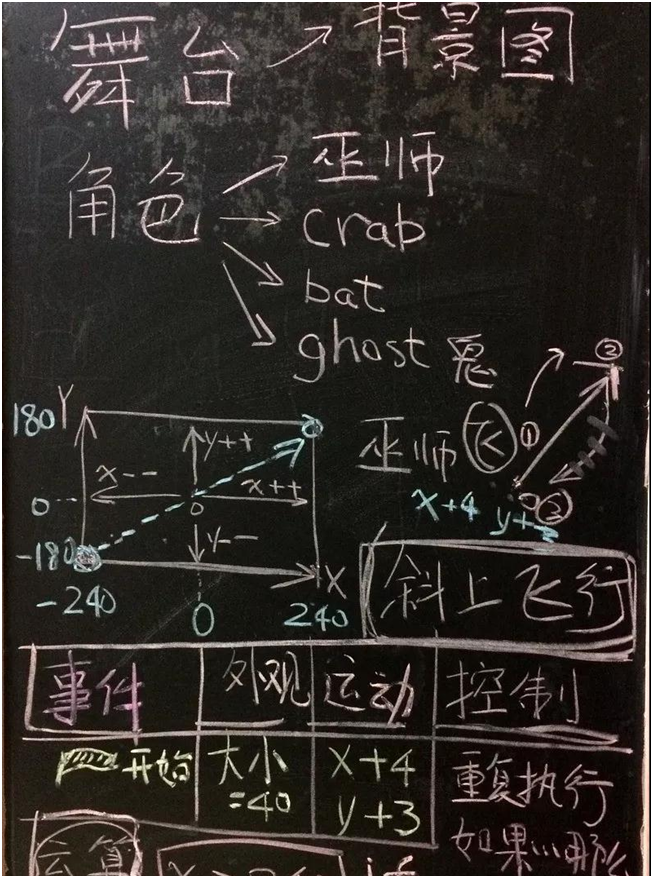 舞台 → 背景图
角色 → 巫师
crab
bat
ghost 鬼
180 Y
y++
x--
x++
0
0
y--
-180
X
-240
0
240
巫师 飞
①
②
③
x+4 y+3
斜上飞行
事件 外观 运动 控制
开始 大小 x+4 重复执行
=40 y+3 如果…那么
运算
if